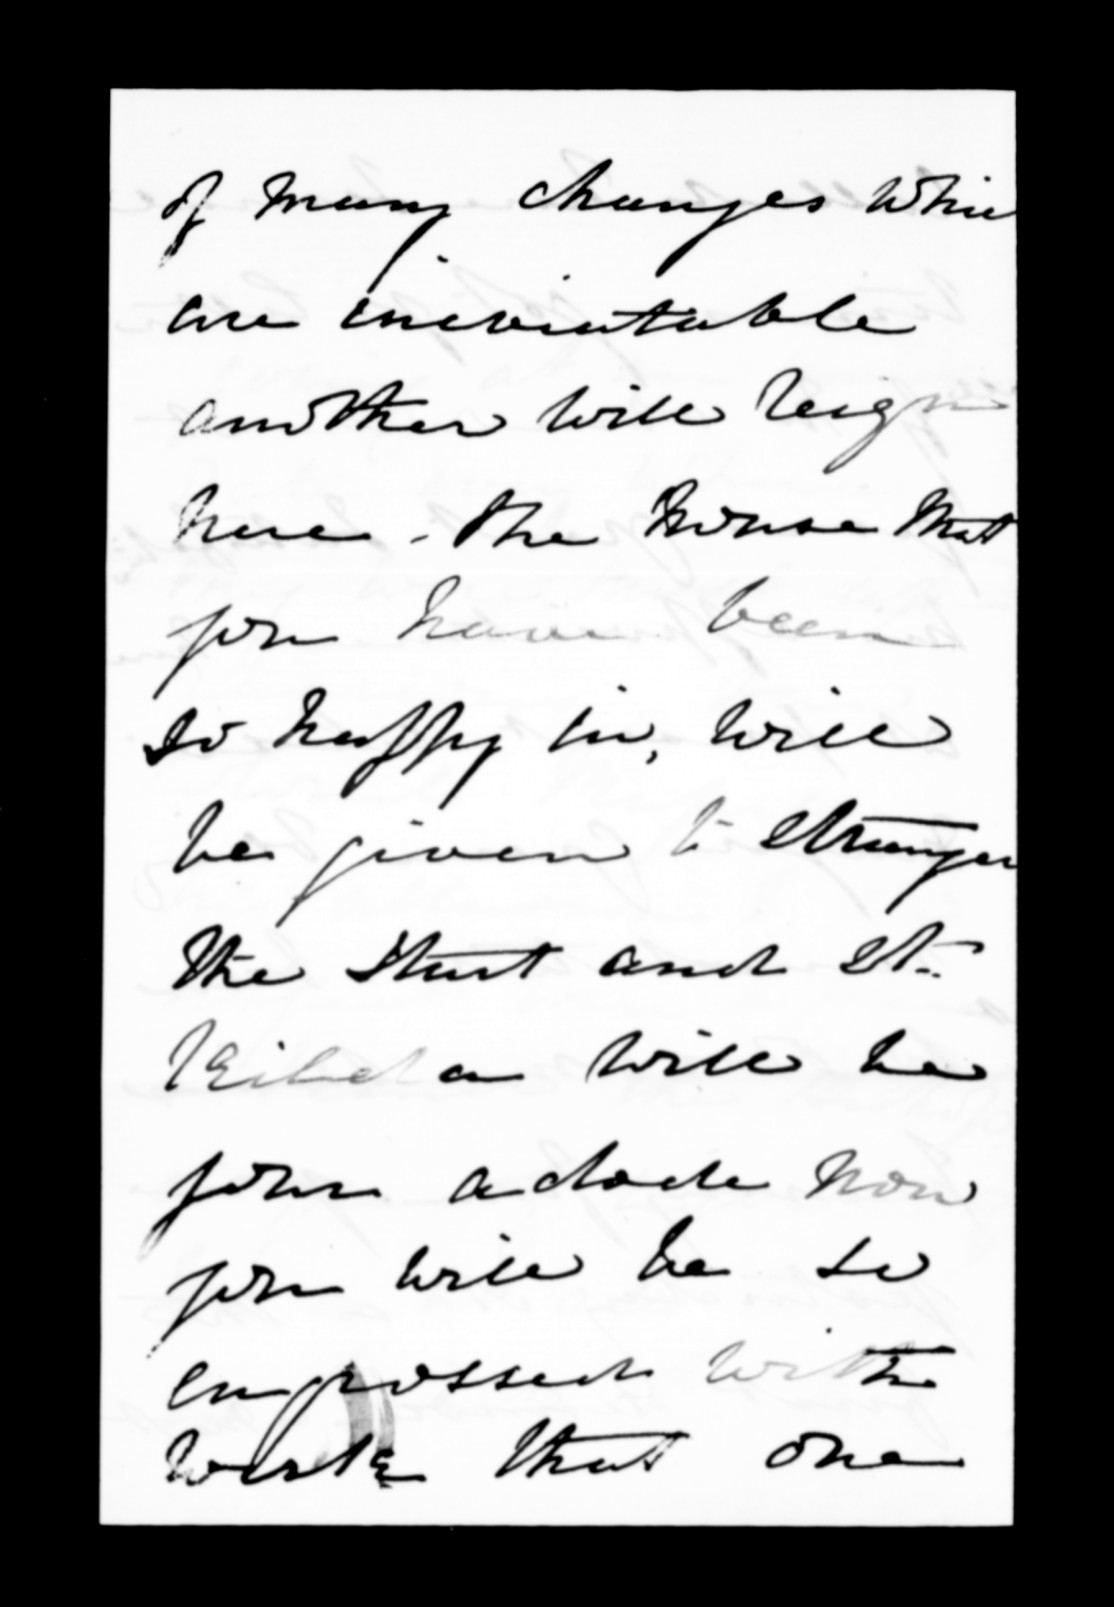 of many changes whic
are ineviatable
another will reign
here - the house that
you have been
so happy in, will
be given to stranger
the and St.
Kilda will be
your adode now
you will be so
engrossed with
work that one